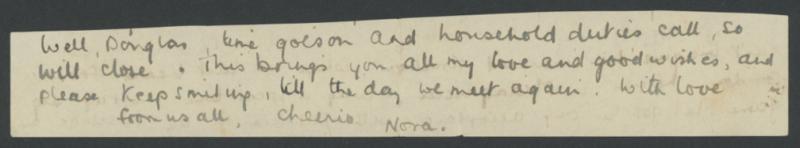 Well, Douglas, time goes on and household duties call, so
will close. This brings you all my love and good wishes, and
please keep smiling, till the day we meet again. With love
from us all, Cheerio Nora.